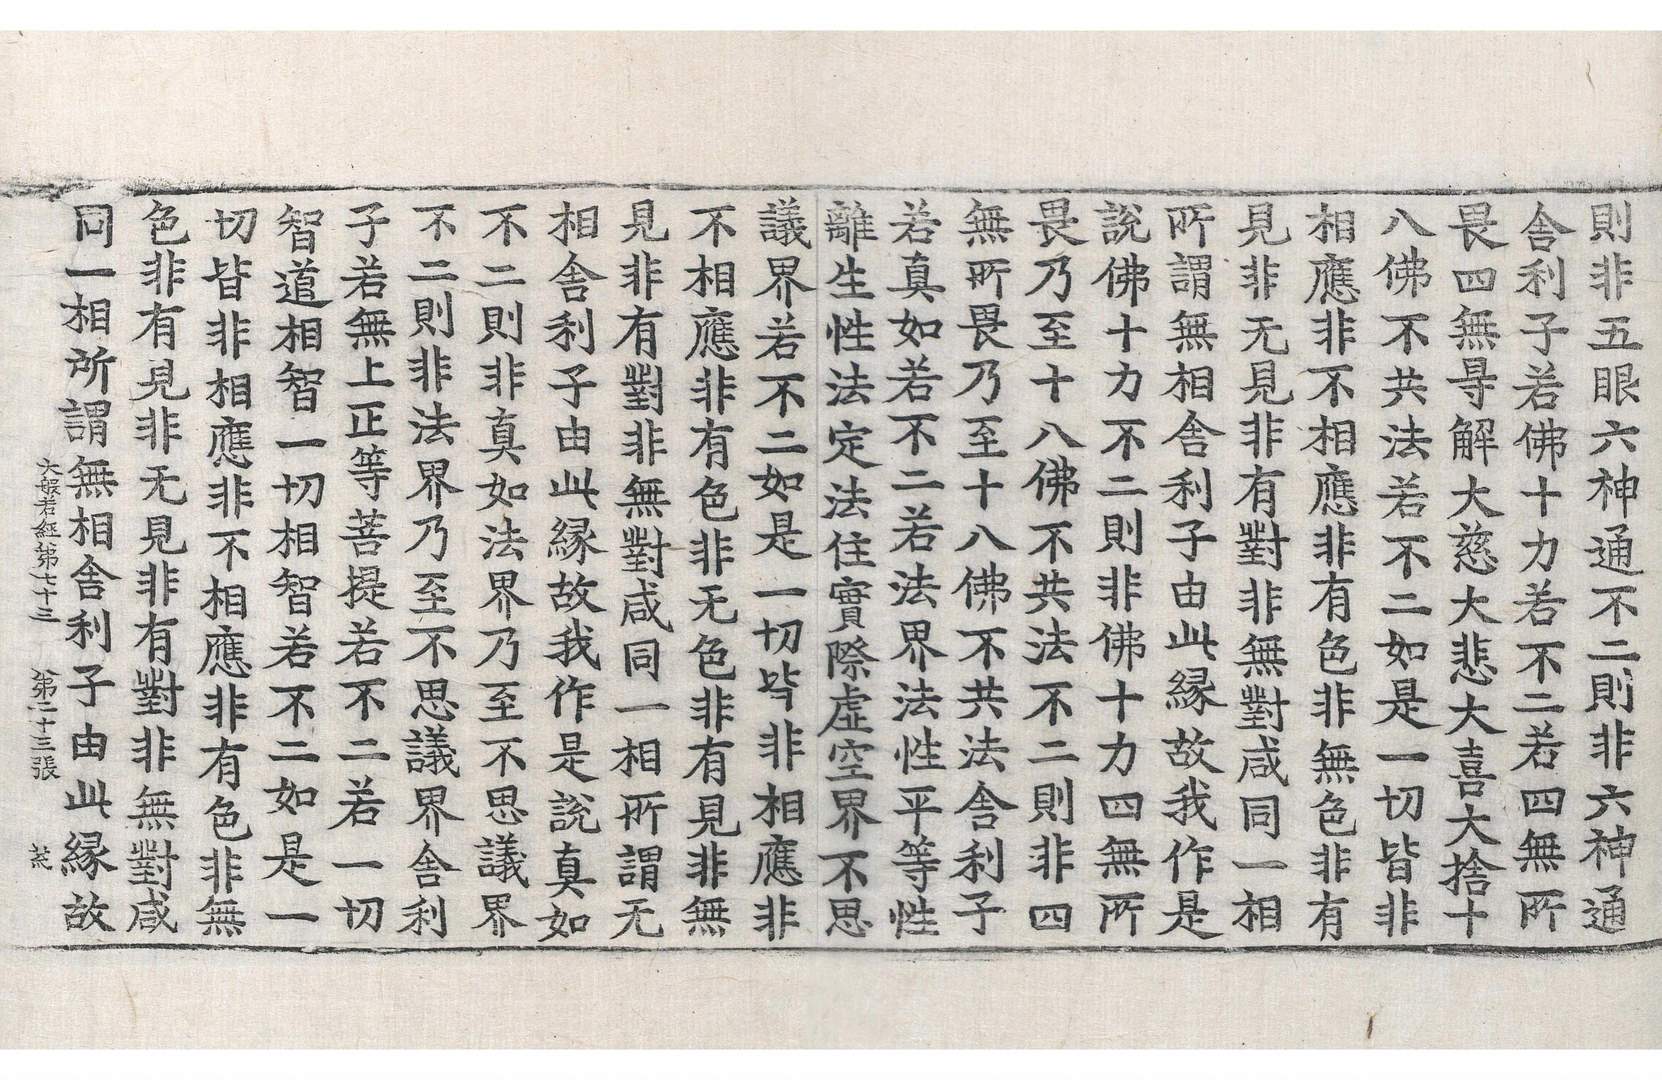 則非五眼六神通不二則非六神通
舎利子若佛十力若不二若四無所
畏四無㝵解大慈大悲大喜大捨十
八佛不共法若不二如是一切皆非
相應非不相應非有色非無色非有
見非无見非有對非無對咸同一相
所謂無相舎利子由此縁故我作是
說佛十力不二則非佛十力四無所
畏乃至十八佛不共法不二則非四
無所畏乃至十八佛不共法舎利子
若真如若不二若法界法性平等性
離生性法定法住實際虛空界不思
議界若不二如是一切皆非相應非
不相應非有色非无色非有見非無
見非有對非無對咸同一相所謂无
相舎利子由此縁故我作是說真如
不二則非真如法界乃至不思議界
不二則非法界乃至不思議界舎利
子若無上正等菩提若不二若一切
智道相智一切相智若不二如是一
切皆非相應非不相應非有色非無
色非有見非无見非有對非無對咸
同一相所謂無相舎利子由此縁故
大般若經第七十三 第二十三張